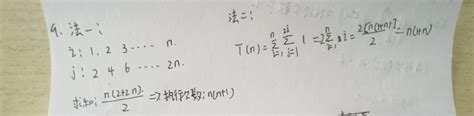 9. 法一:
i: 1, 2 3 ···· n.
j: 2 4 6 ···· 2n.
求和: n(2+2n)/2 => 执行次数: n(n+1)
法二:
T(n) = ∑_{i=1}^{n} ∑_{j=1}^{2i} 1 = 2∑_{i=1}^{n} i = 2[n(1+n)]/2 = n(1+n)